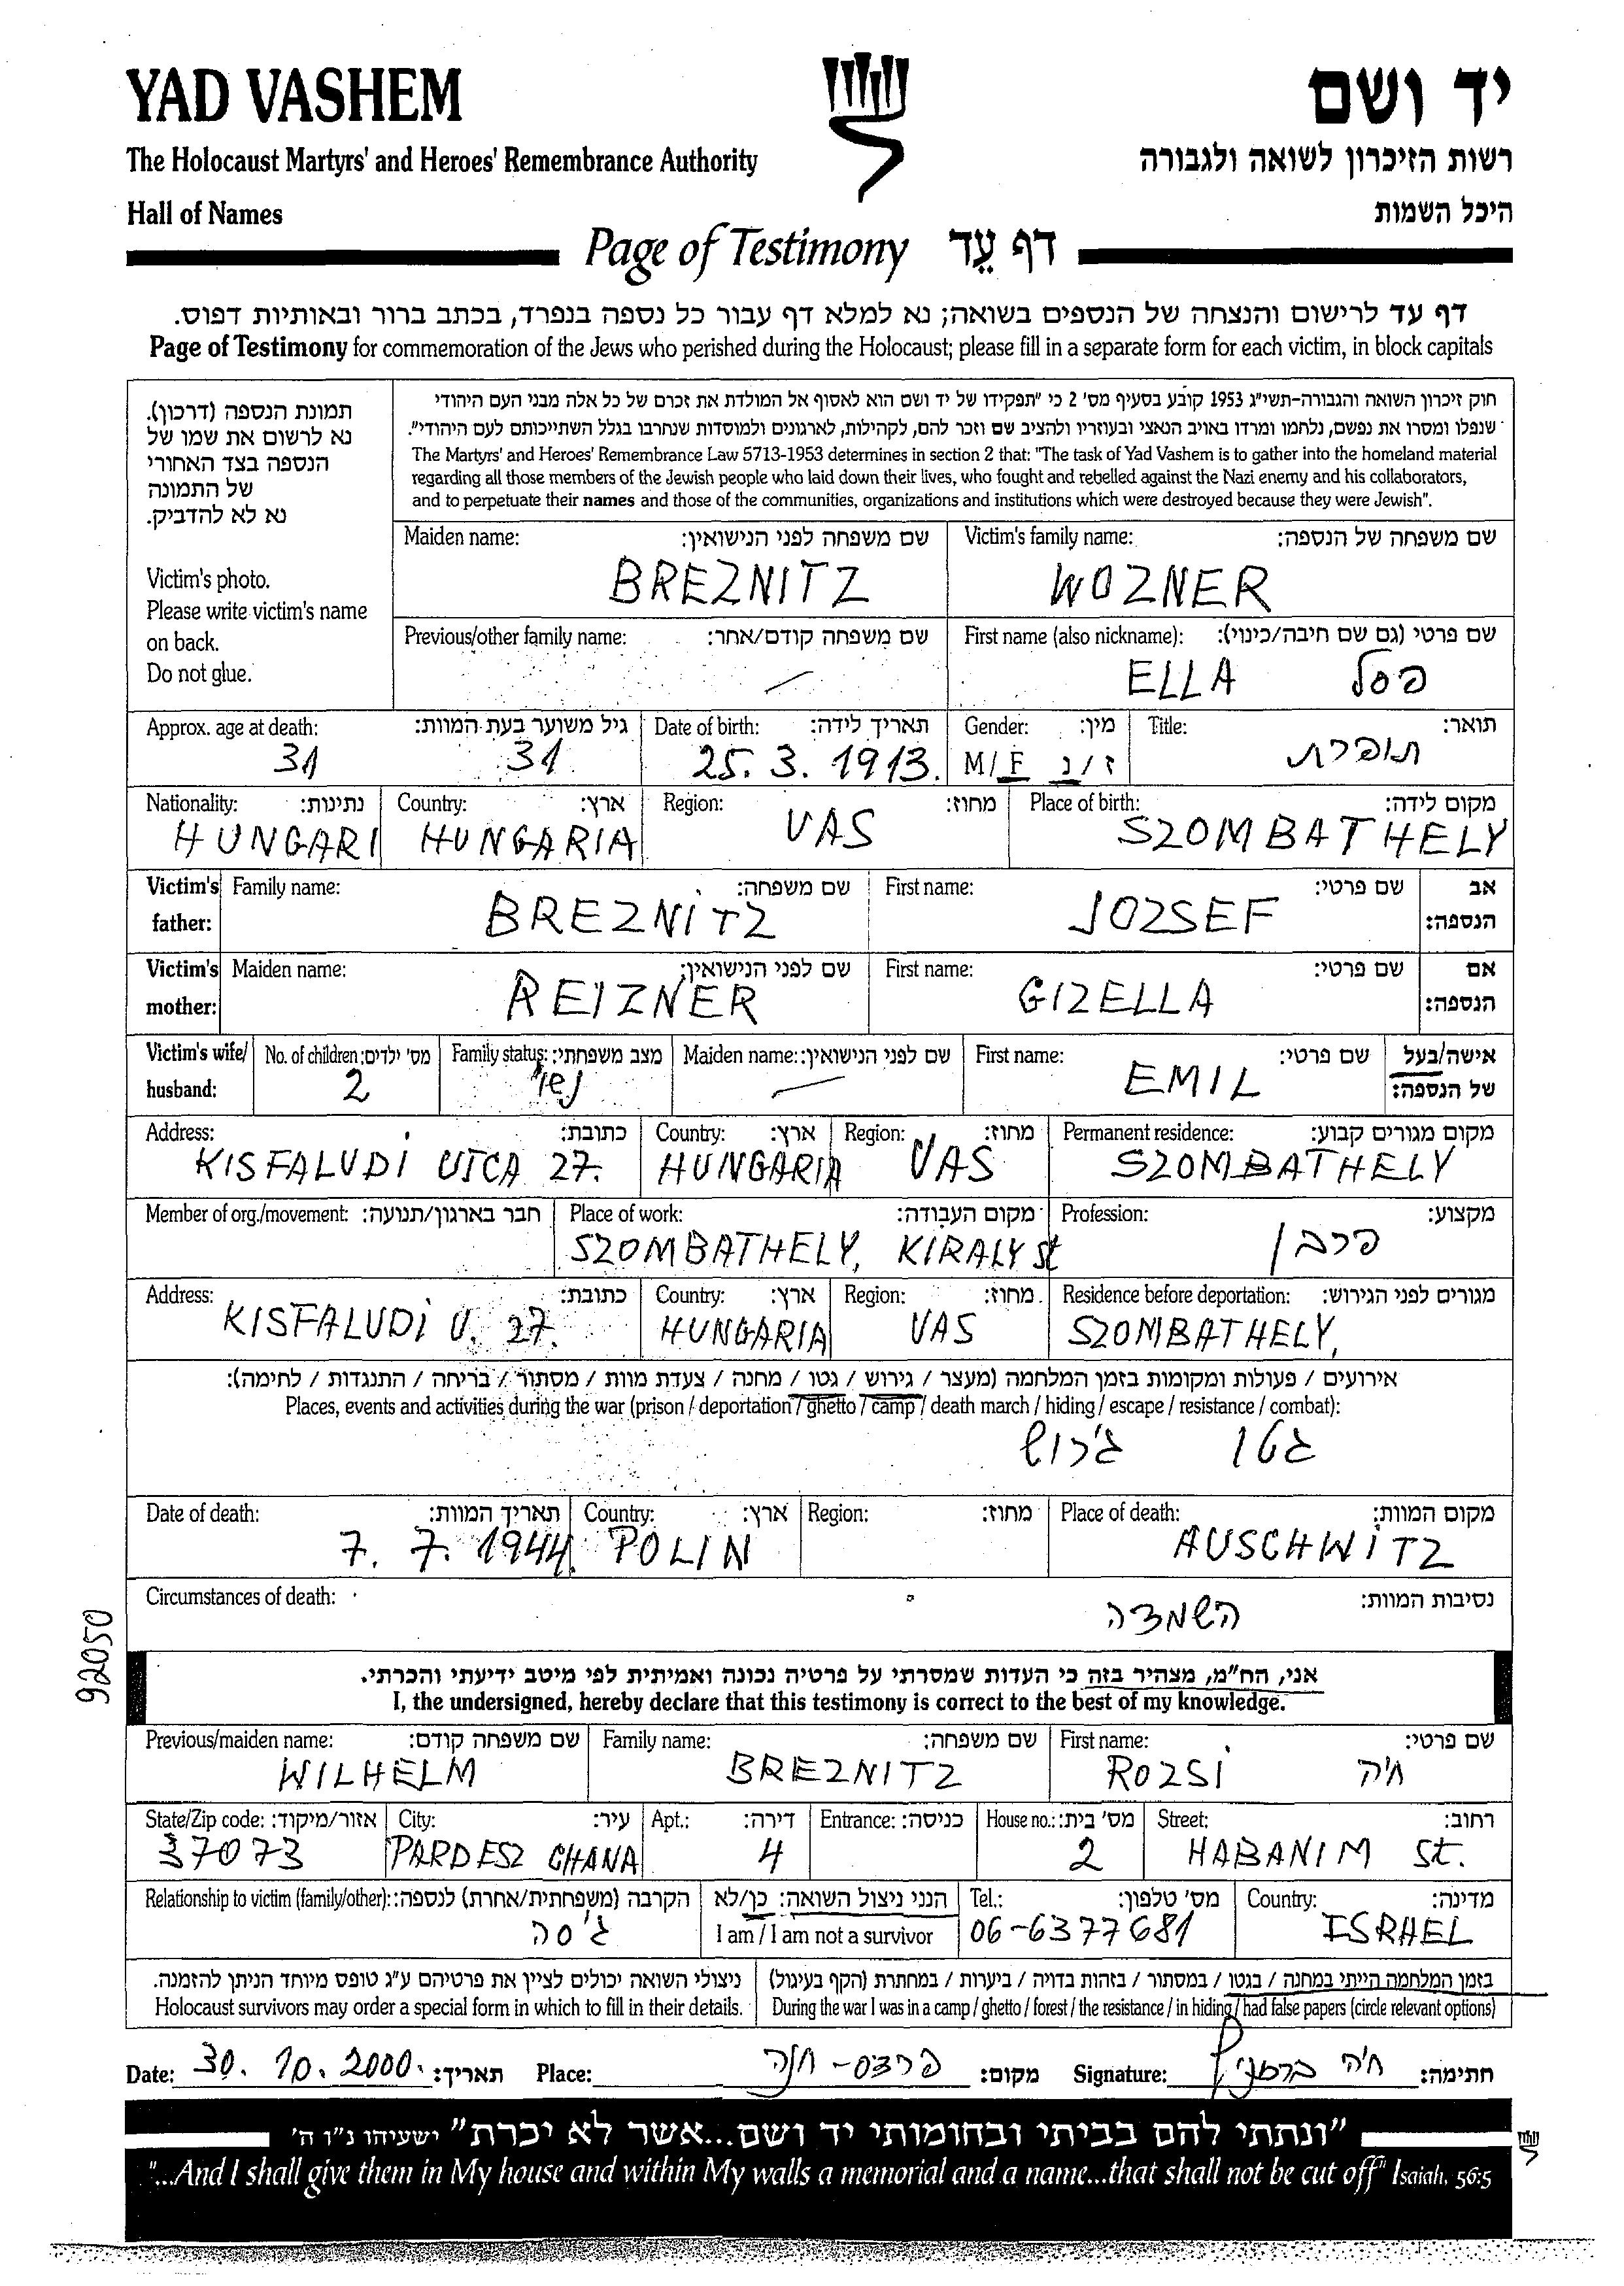 YAD VASHEM יד ושם
The Holocaust Martyrs' and Heroes' Remembrance Authority רשות הזיכרון לשואה ולגבורה
Hall of Names היכל השמות
Page of Testimony דף עֵד
דף עד לרישום והנצחה של הנספים בשואה; נא למלא דף עבור כל נספה בנפרד, בכתב ברור ובאותיות דפוס.
Page of Testimony for commemoration of the Jews who perished during the Holocaust; please fill in a separate form for each victim, in block capitals
תמונת הנספה (דרכון).
נא לרשום את שמו של
הנספה בצד האחורי
של התמונה
נא לא להדביק.
Victim's photo.
Please write victim's name
on back.
Do not glue.
חוק זיכרון השואה והגבורה-תשי"ג 1953 קובע בסעיף מס' 2 כי "תפקידו של יד ושם הוא לאסוף אל המולדת את זכרם של כל אלה מבני העם היהודי
שנפלו ומסרו את נפשם, נלחמו ומרדו באויב הנאצי ובעוזריו ולהציב שם וזכר להם, לקהילות, לארגונים ולמוסדות שנחרבו בגלל השתייכותם לעם היהודי".
The Martyrs' and Heroes' Remembrance Law 5713-1953 determines in section 2 that: "The task of Yad Vashem is to gather into the homeland material
regarding all those members of the Jewish people who laid down their lives, who fought and rebelled against the Nazi enemy and his collaborators,
and to perpetuate their names and those of the communities, organizations and institutions which were destroyed because they were Jewish".
Maiden name: שם משפחה לפני הנישואין: Victim's family name: שם משפחה של הנספה:
BREZNITZ WOZNER
Previous/other family name: שם משפחה קודם/אחר: First name (also nickname): שם פרטי (גם שם חיבה/כינוי):
ELLA פסל
Approx. age at death: גיל משוער בעת המוות: Date of birth: תאריך לידה: Gender: מין: Title: תואר:
31 31 25. 3. 1913. M/F ז/נ תופרת
Nationality: נתינות: Country: ארץ: Region: מחוז: Place of birth: מקום לידה:
HUNGARI HUNGARIA VAS SZOMBATHELY
Victim's father: Family name: שם משפחה: First name: שם פרטי: אב הנספה:
BREZNITZ JOZSEF
Victim's mother: Maiden name: שם לפני הנישואין: First name: שם פרטי: אם הנספה:
REIZNER GIZELLA
Victim's wife/ husband: No. of children: מס' ילדים: Family status: מצב משפחתי: Maiden name: שם לפני הנישואין: First name: שם פרטי: אישה/בעל של הנספה:
2 EMIL
Address: כתובת: Country: ארץ: Region: מחוז: Permanent residence: מקום מגורים קבוע:
KISFALUDI UTCA 27. HUNGARIA VAS SZOMBATHELY
Member of org./movement: חבר בארגון/תנועה: Place of work: מקום העבודה: Profession: מקצוע:
SZOMBATHELY, KIRALY st
Address: כתובת: Country: ארץ: Region: מחוז: Residence before deportation: מגורים לפני הגירוש:
KISFALUDI U. 27. HUNGARIA VAS SZOMBATHELY,
אירועים / פעולות ומקומות בזמן המלחמה (מעצר / גירוש / גטו / מחנה / צעדת מוות / מסתור / בריחה / התנגדות / לחימה):
Places, events and activities during the war (prison / deportation / ghetto / camp / death march / hiding / escape / resistance / combat):
גטו גירוש
Date of death: תאריך המוות: Country: ארץ: Region: מחוז: Place of death: מקום המוות:
7. 7. 1944. POLIN AUSCHWITZ
Circumstances of death: נסיבות המוות:
השמדה
92050
אני, הח"מ, מצהיר בזה כי העדות שמסרתי על פרטיה נכונה ואמיתית לפי מיטב ידיעתי והכרתי.
I, the undersigned, hereby declare that this testimony is correct to the best of my knowledge.
Previous/maiden name: שם משפחה קודם: Family name: שם משפחה: First name: שם פרטי:
WILHELM BREZNITZ ROZSI חיה
State/Zip code: אזור/מיקוד: City: עיר: Apt.: דירה: Entrance: כניסה: House no.: מס' בית: Street: רחוב:
37073 PARDESZ CHANA 4 2 HABANIM st.
Relationship to victim (family/other): הקרבה (משפחתית/אחרת) לנספה: הנני ניצול השואה: כן/לא Tel.: מס' טלפון: Country: מדינה:
גיסה I am / I am not a survivor 06-6377681 ISRAEL
ניצולי השואה יכולים לציין את פרטיהם ע"ג טופס מיוחד הניתן להזמנה. בזמן המלחמה הייתי במחנה / בגטו / במסתור / בזהות בדויה / ביערות / במחתרת (הקף בעיגול)
Holocaust survivors may order a special form in which to fill in their details. During the war I was in a camp / ghetto / forest / the resistance / in hiding / had false papers (circle relevant options)
Date: 30. 10. 2000. תאריך: Place: פרדס-חנה מקום: Signature: חיה ברזניץ חתימה:
"ונתתי להם בביתי ובחומותי יד ושם...אשר לא יכרת" ישעיהו נ"ו ה'
"...And I shall give them in My house and within My walls a memorial and a name...that shall not be cut off" Isaiah, 56:5